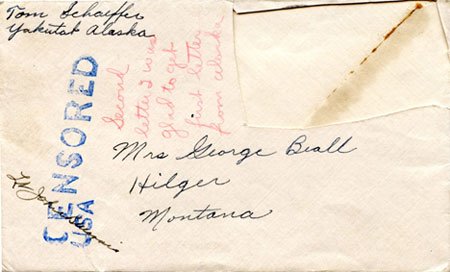 Tom Schaeffer
Yakutat Alaska
Second
letter I was
glad to get
first letter
from alaska
CENSORED
USA
Mrs George Beall
Hilger
Montana